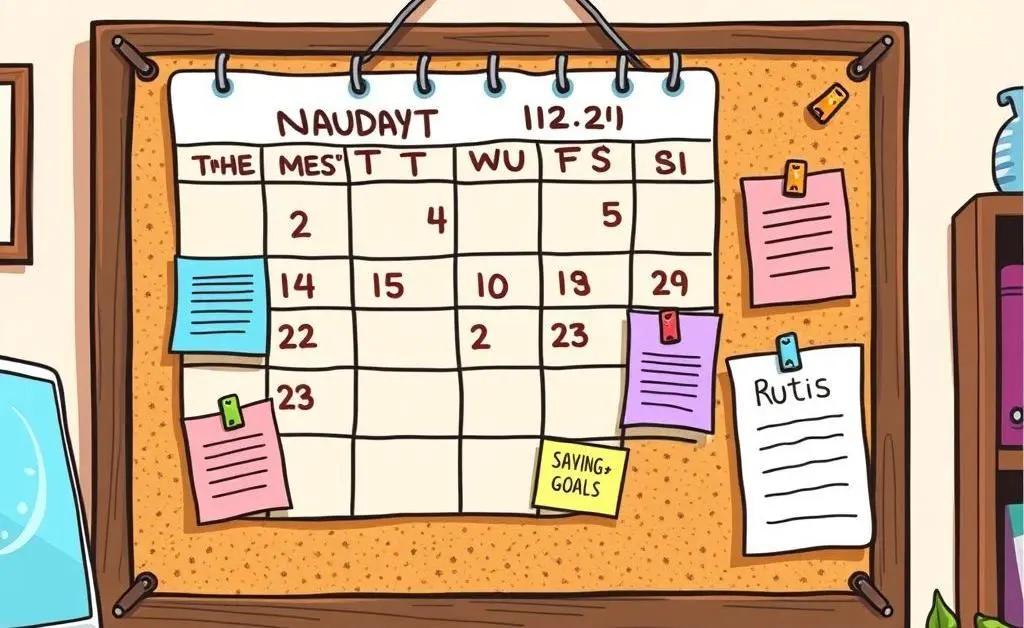 NAUDAYT 112.21)
T'HE MES" T T WU F S SI
2 4 5
14 15 10 19 29
22 2 23
23
SAVING+
GOALS
Rutis